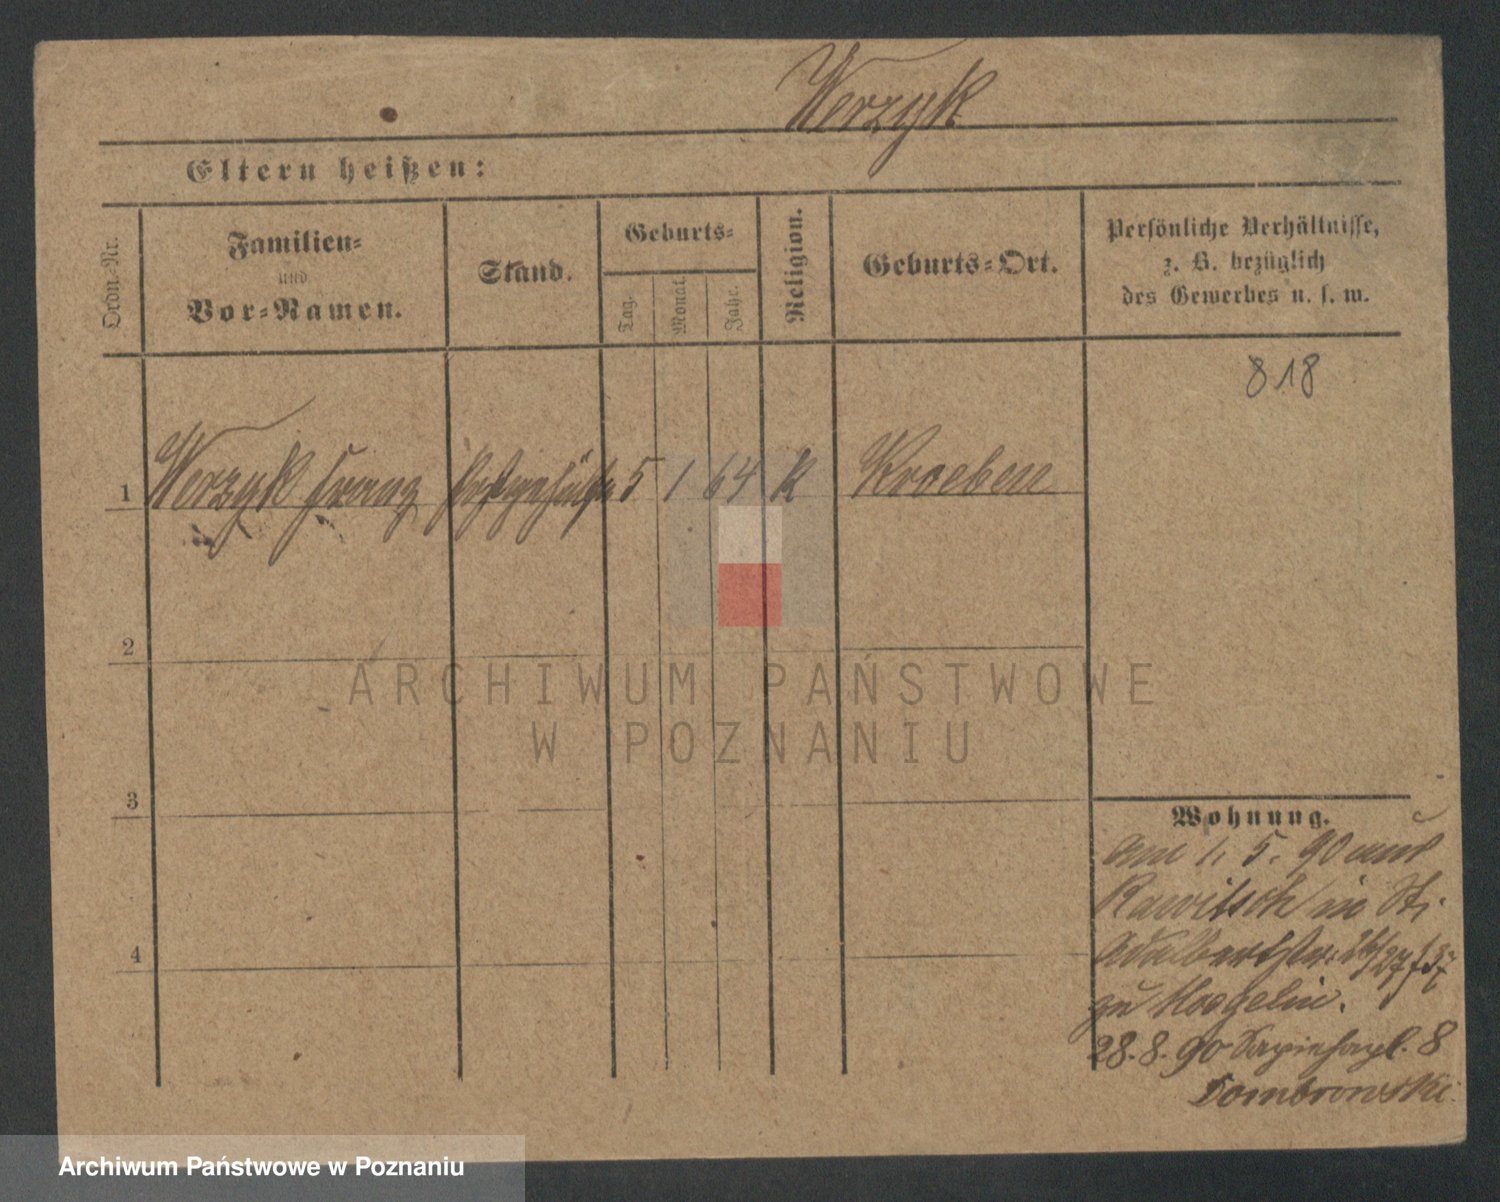 Werzyk
Eltern heißen:
Ordn.-Nr.
Familien-
und
Vor-Namen.
Stand.
Geburts-
Tag.
Monat.
Jahr.
Religion.
Geburts-Ort.
Persönliche Verhältnisse,
z. B. bezüglich
des Gewerbes u. s. w.
818
1 Werzyk Franz Postgehülfe 5 1 64 K Kroeben
2
3
4
Wohnung.
am 1. 5. 90 aus
Rawitsch in St.
Adalbertstr. 26/27
zu
28.8.90 Sapiehapl. 8
Dombrowski.
ARCHIWUM PAŃSTWOWE
W POZNANIU
Archiwum Państwowe w Poznaniu